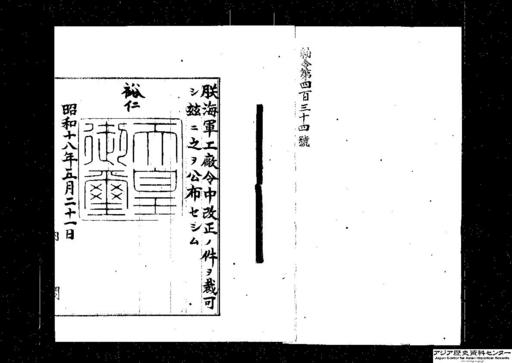 勅令第四百三十四號
朕海軍工廠令中改正ノ件ヲ裁可
シ茲ニ之ヲ公布セシム
裕仁
天皇
御璽
昭和十八年五月二十一日
内閣
アジア歴史資料センター
Japan Center for Asian Historical Records